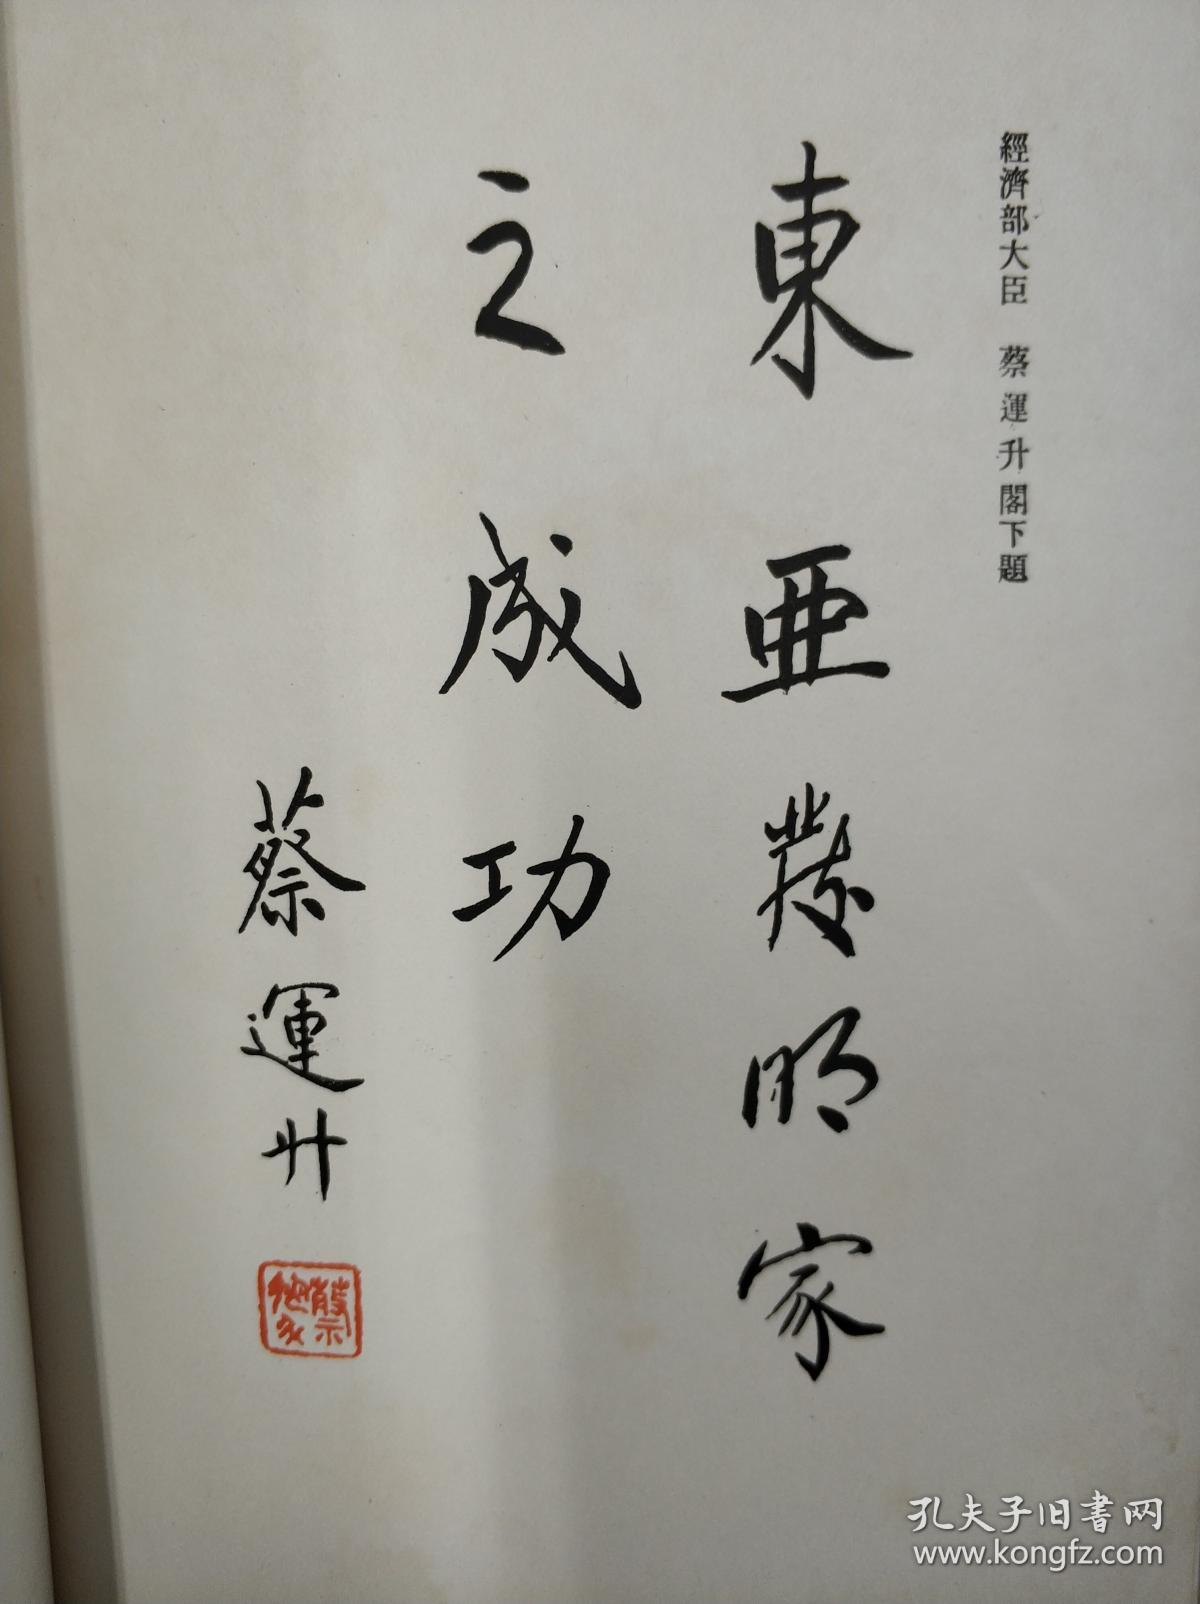 經濟部大臣 蔡運升閣下題
東亜發明家
之成功
蔡運升
孔夫子旧书网
www.kongfz.com